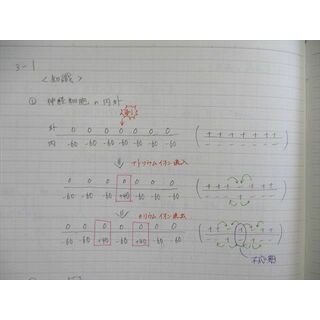 3-1
<知識>
① 神経細胞の内外
刺激
外 0 0 0 0 0 0 0
内 -60 -60 -60 -60 -60 -60 -60
( + + + + + + + )
- - - - - - -
ナトリウムイオン流入
0 0 0 0 0 0 0
-60 -60 -60 +40 -60 -60 -60
カリウムイオン流出
0 0 0 0 0 0 0
-60 -60 +40 -60 +40 -60 -60
不応期